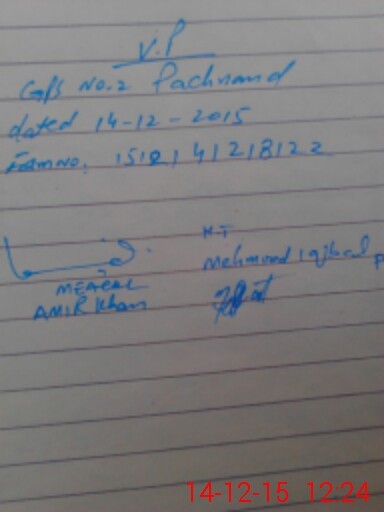 V.P
GPS No.2 Pachnand
dated 14-12-2015
H.T
Mehmood iqbal
AMIR Khan
14-12-15 12:24